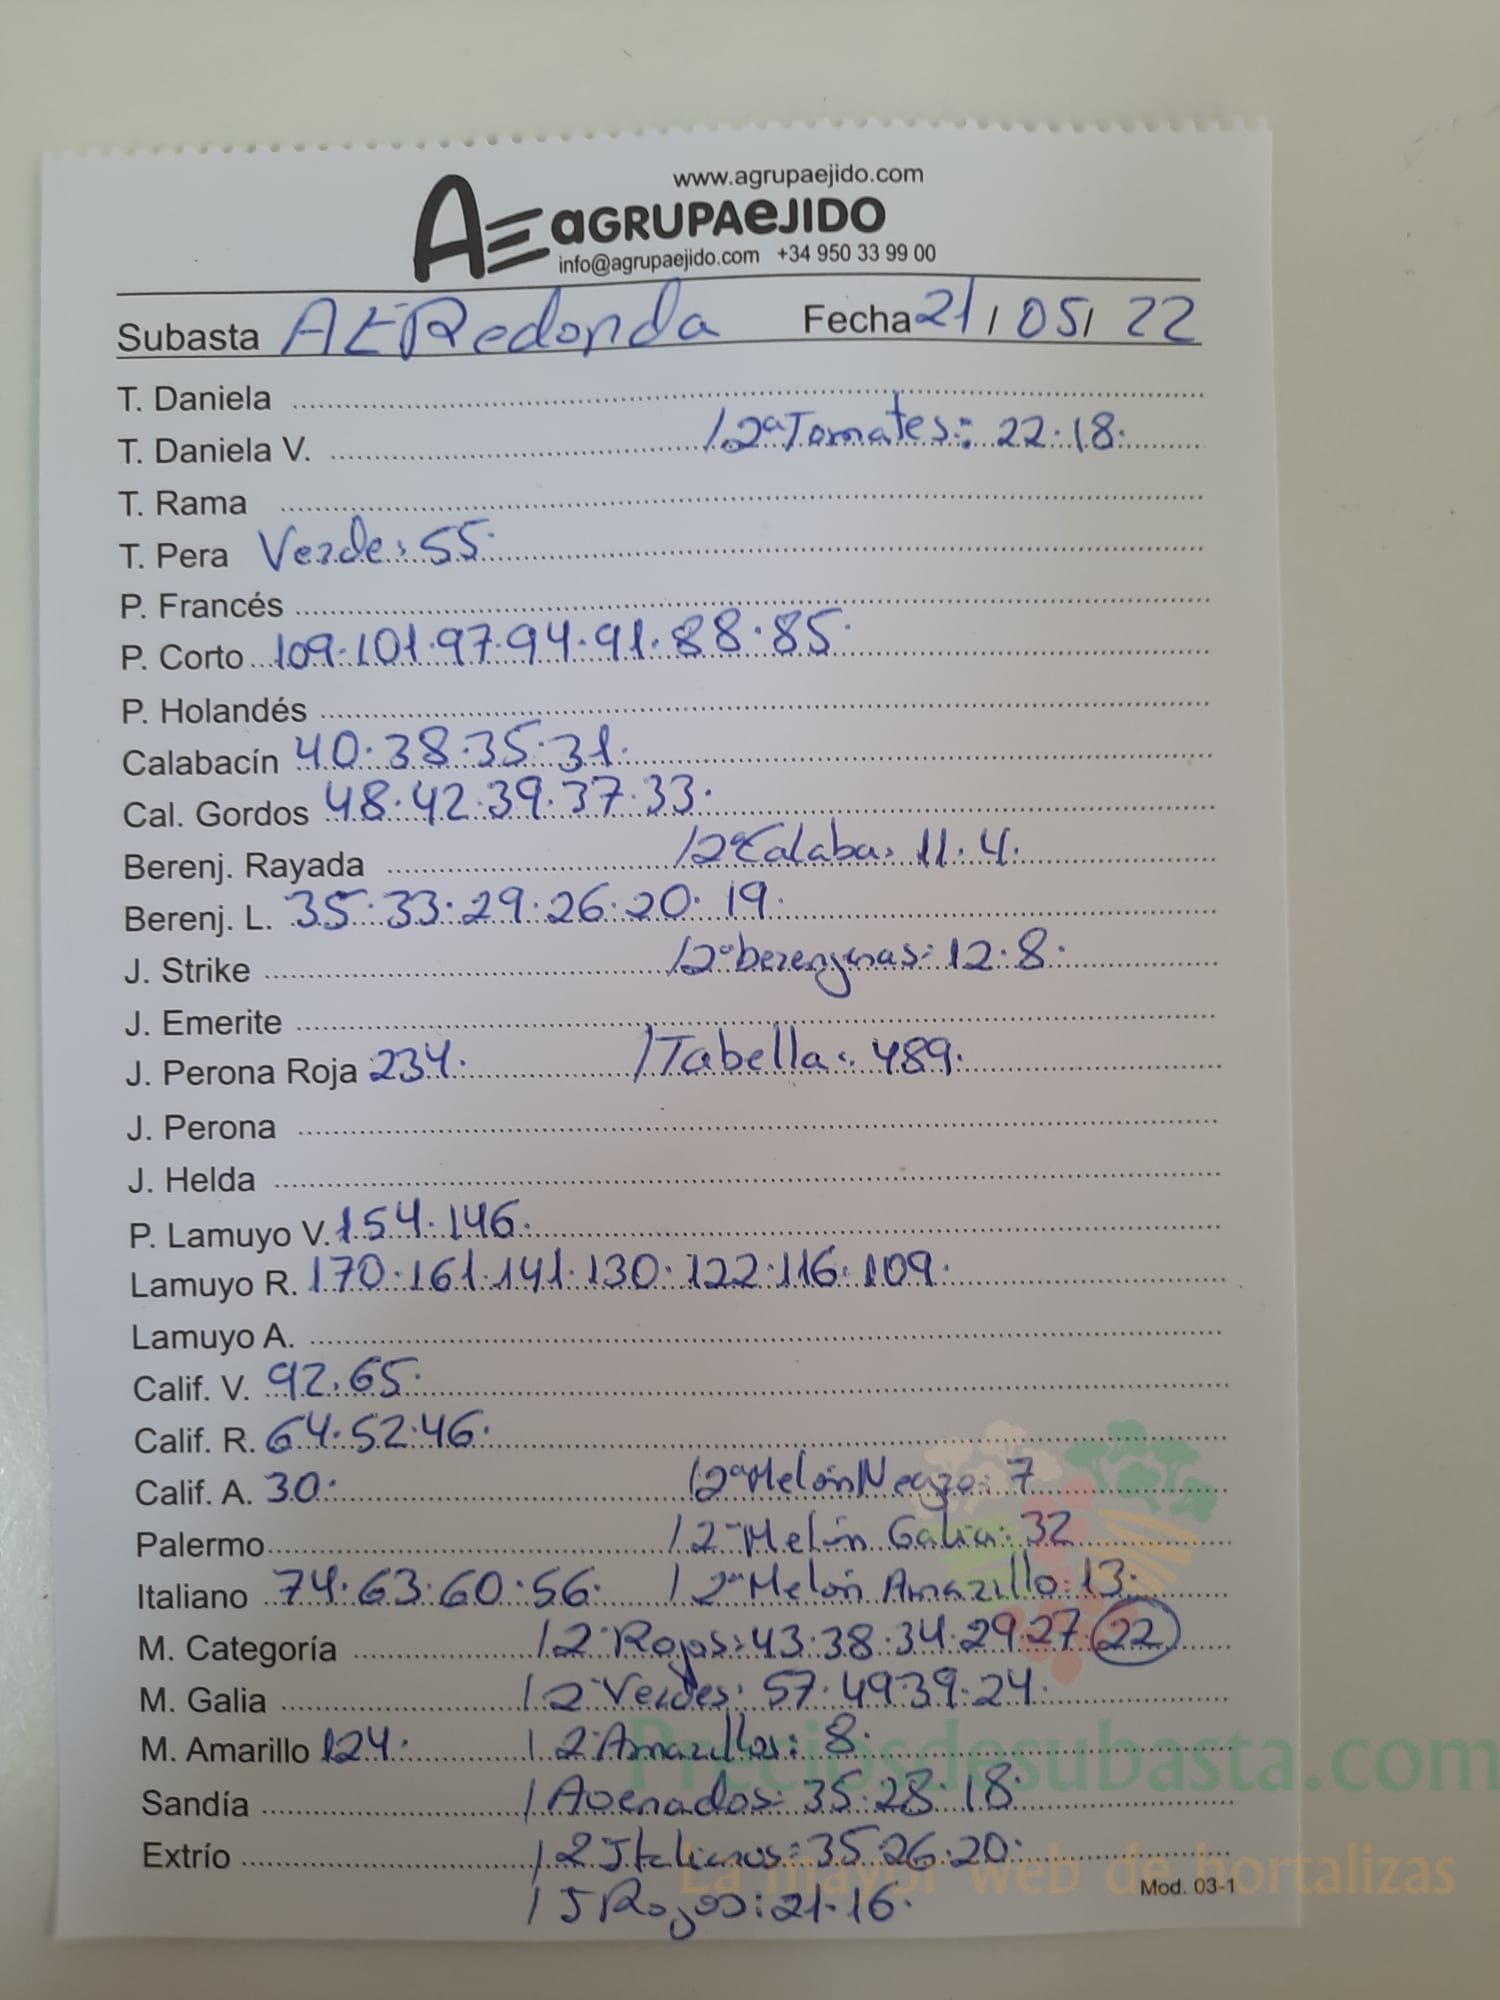 www.agrupaejido.com
AE aGRUPAeJIDO
info@agrupaejido.com +34 950 33 99 00
Subasta AE Redonda Fecha 21/05/22
T. Daniela
T. Daniela V. /2ª Tomates: 22·18·
T. Rama
T. Pera Verde: 55·
P. Francés
P. Corto 109·101·97·94·91·88·85·
P. Holandés
Calabacín 40·38·35·31·
Cal. Gordos 48·42·39·37·33·
Berenj. Rayada /2ª Calaba: 11·4·
Berenj. L. 35·33·29·26·20·19·
J. Strike /2ª berenjenas: 12·8·
J. Emerite
J. Perona Roja 234· /Tabella: 489·
J. Perona
J. Helda
P. Lamuyo V. 154·146·
Lamuyo R. 170·161·141·130·122·116·109·
Lamuyo A.
Calif. V. 92·65·
Calif. R. 64·52·46·
Calif. A. 30· /2ª Melón Negro: 7
Palermo /2ª Melón Galia: 32
Italiano 74·63·60·56· /2ª Melón Amarillo: 13·
M. Categoría /2ª Rojos: 43·38·34·29·27·22
M. Galia /2ª Verdes: 57·49·39·24·
M. Amarillo 124· /2ª Amarillos: 8·
Sandía /Asenados: 35·28·18·
Extrío /2 Italianos: 35·26·20·
/J Rojos: 21·16·
Mod. 03-1
Preciosdesubasta.com
La mayor web de hortalizas